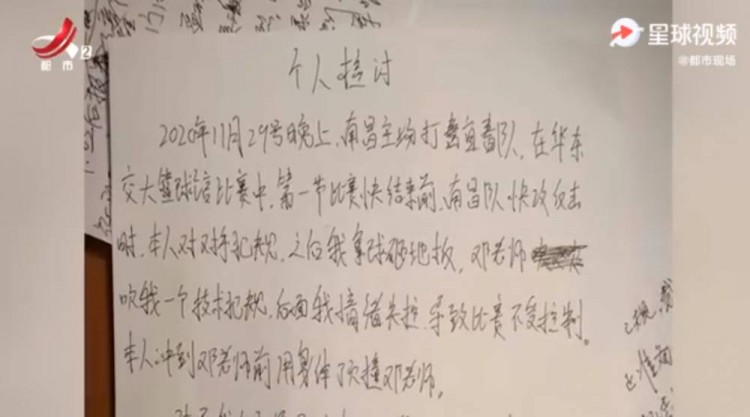 都市2
星球视频
@都市现场
个人检讨
2020年11月29号晚上,南昌主场打宜春队,在华东
交大篮球馆比赛中,第一节比赛快结束前,南昌队快攻反击
时,本人对对手犯规,之后我拿球砸地板,邓老师
吹我一个技术犯规,后面我情绪失控,导致比赛不受控制。
本人冲到邓老师前用身体顶撞邓老师。